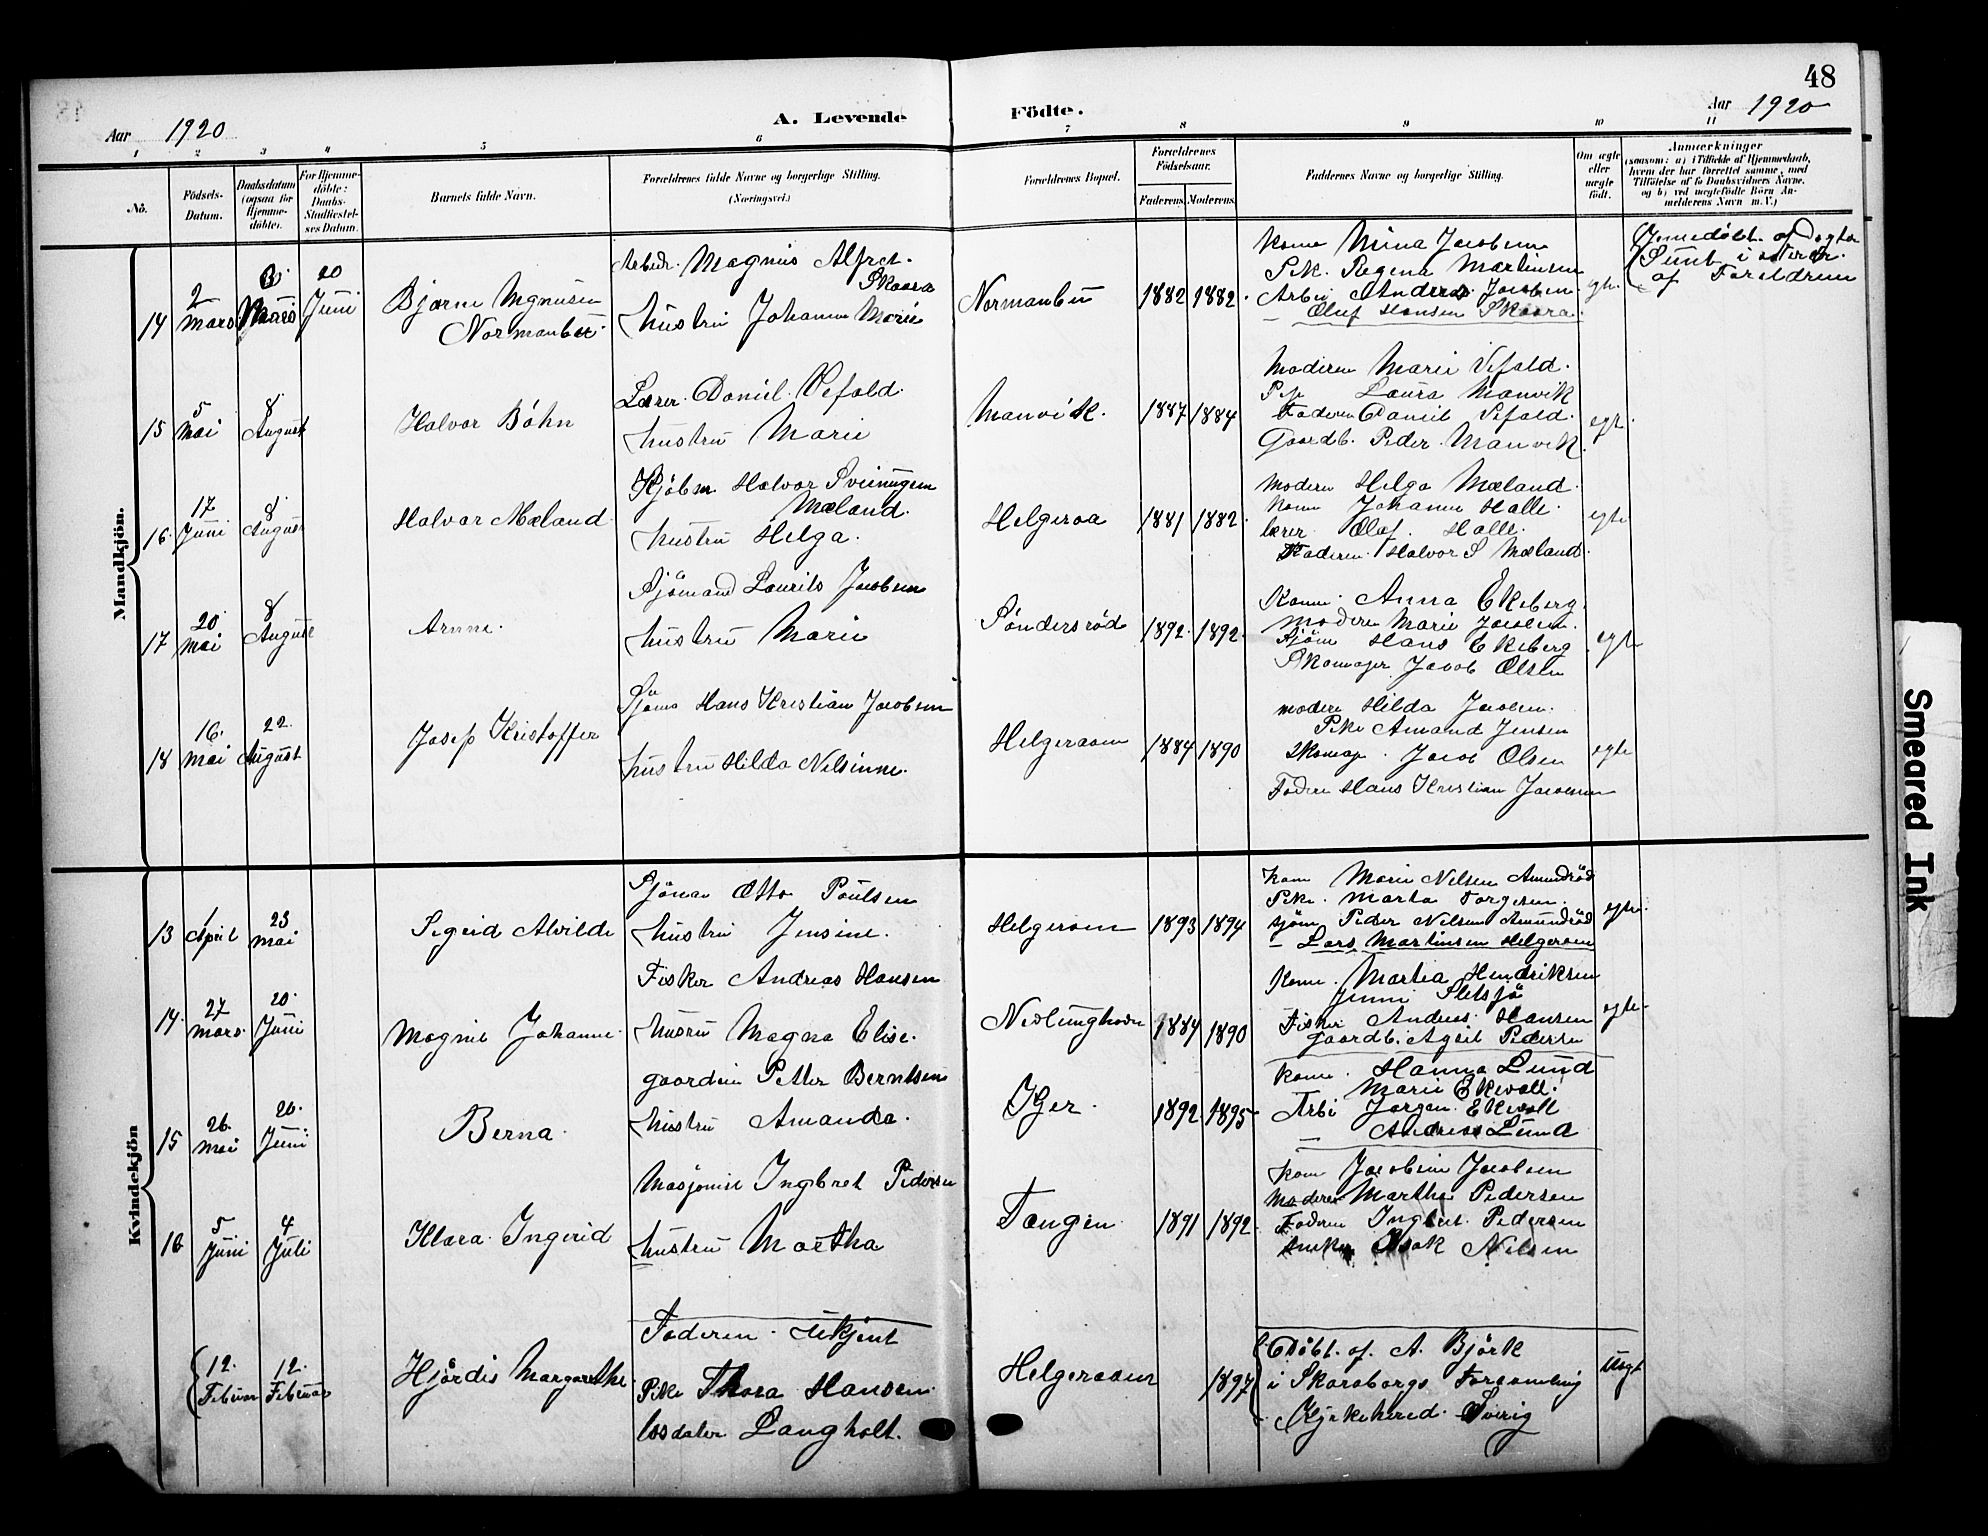 48
Aar 1920
A. Levende Födte.
Aar 1920
1 2 3 4 5 6 7 8 9 10 11
No.
Födsels-Datum.
Daabsdatum (ogsaa for Hjemme-döbte).
For Hjemme-döbte: Daabs-Stadfæstel-ses Datum.
Barnets fulde Navn.
Forældrenes fulde Navne og borgerlige Stilling. (Næringsvei.)
Forældrenes Bopæl.
Forældrenes Födselsaar.
Faderens. Moderens.
Faddernes Navne og borgerlige Stilling.
Om ægte eller uægte födt.
Anmærkninger
(saasom: a) i Tilfælde af Hjemmedaab, hvem der har forrettet samme, med Tilföielse af to Daabsvidners Navne, og b) ved uægtefödte Börn An-melderens Navn m. V.)
Mandkjön.
14 2 Mars 20 Juni
Bjarne Mgnusen
Normanbu
Arbeidr. Magnus Alfret Skaara
hustru Johanne Marie
Normanbu 1882 1882
Kone Mina Jacobsen
Pik. Regena Martinsen
Arbei Anders Jacobsen
– Oluf Hansen Skaara
Sunt i
af Foreldrene
15 5 Mai 8 August
Halvor Böhn
Lærer Daniel Vefald
hustru Marie
Manvik 1887 1884
Moderen Marie Vefald
Laura Manvik
Faderen Daniel Vefald
Gaardb. Peder Manvik
egt.
16 17 Juni 8 August
Halvar Mæland
Kjöbm Halvor Sveinugen Mæland
hustru Helga
Helgeroa 1881 1882
modern Helga Mæland
Kone Johanne Halle
lærer Olaf Halle
Faderen Halvor S Mæland
egte
17 20 Mai 8 August
Arnne
Sjömand Laurits Jacobsen
hustru Marie
Söndersröd 1892 1892
Kone Anna Ekeberg
Modern Marie Jacobsen
Sjöm Hans Ekeberg
Skomager Jacob Olsen
egte
18 16 Mai 22 August
Josep Kristoffer
Sjöma Hans Kristian Jacobsen
hustru Hilda Nilsinne
Helgeraaen 1884 1890
modern Hilda Jacobsen
Pike Amand Jensen
Skomager Jacob Olsen
Fadern Hans Kristian Jacobsen
egte
Kvindekjön
13 April 23 Mai
Sigrid Alvilde
Sjöman Otto Poulsen
hustru Jensine
Helgeroen 1893 1894
Kone Marie Nilsen Amundröd
Pike Marta Torgesen
sjöm Peder Nilsen Amundröd
– Lars Martinsen Helgeroen
egte
14 27 Mars 20 Juni
Magnie Johanne
Fisker Andreas Hansen
hustru Magna Elise
Nevlunghavn 1884 1890
Kone Martia Hendriksen
Jenni Sletsjö
Fisker Andreas Hansen
Gaardb. Agvit Pedersen
egte
15 26 Mai 20 Juni
Berna
Petter Berntsen
hustru Amanda
1892 1895
Kone Hanna Lund
Marie Ekvall
Arbi Jørgen Ekvall
– Andreas Lund
16 5 Juni 4 Juli
Klara Ingerid
Ingebret Pedersen
hustru Martha
Tangen 1891 1892
Kone Jacobine Jacobsen
Moderen Martha Pedersen
Faderen Ingbret Pedersen
Isak Nilsen
12 Februar 12 Februar
Hjördis Margarethe
Faderen Ukjent
Pike Thora Hansen
losdater Langholt
Helgeraaen 1897
Döbt af A. Björk
i Skaraborgs Forsamling
Kyrkehered Sverig
Uegt
Smeared Ink